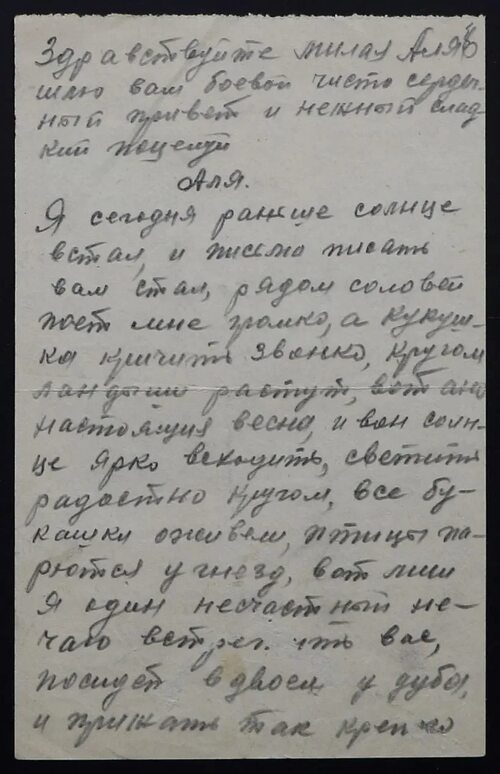 Здравствуйте милая Аля"
шлю вам боевой чисто сердеч-
ный привет и нежный слад-
кий поцелуй
Аля.
Я сегодня раньше солнце
встал, и письмо писать
вам стал, рядом соловей
поет мне громко, а кукуш-
ка кричить звонко, кругом
ландыши растут, вот
настоящия весна, и вон солн-
це ярко всходить, светить
радостно кругом, все бу-
кашки оживели, птицы па-
рются у гнезд, вот лиш
Я один несчастный не-
чаю вас,
посидет вдвоем у дуба,
и прижать так крепко